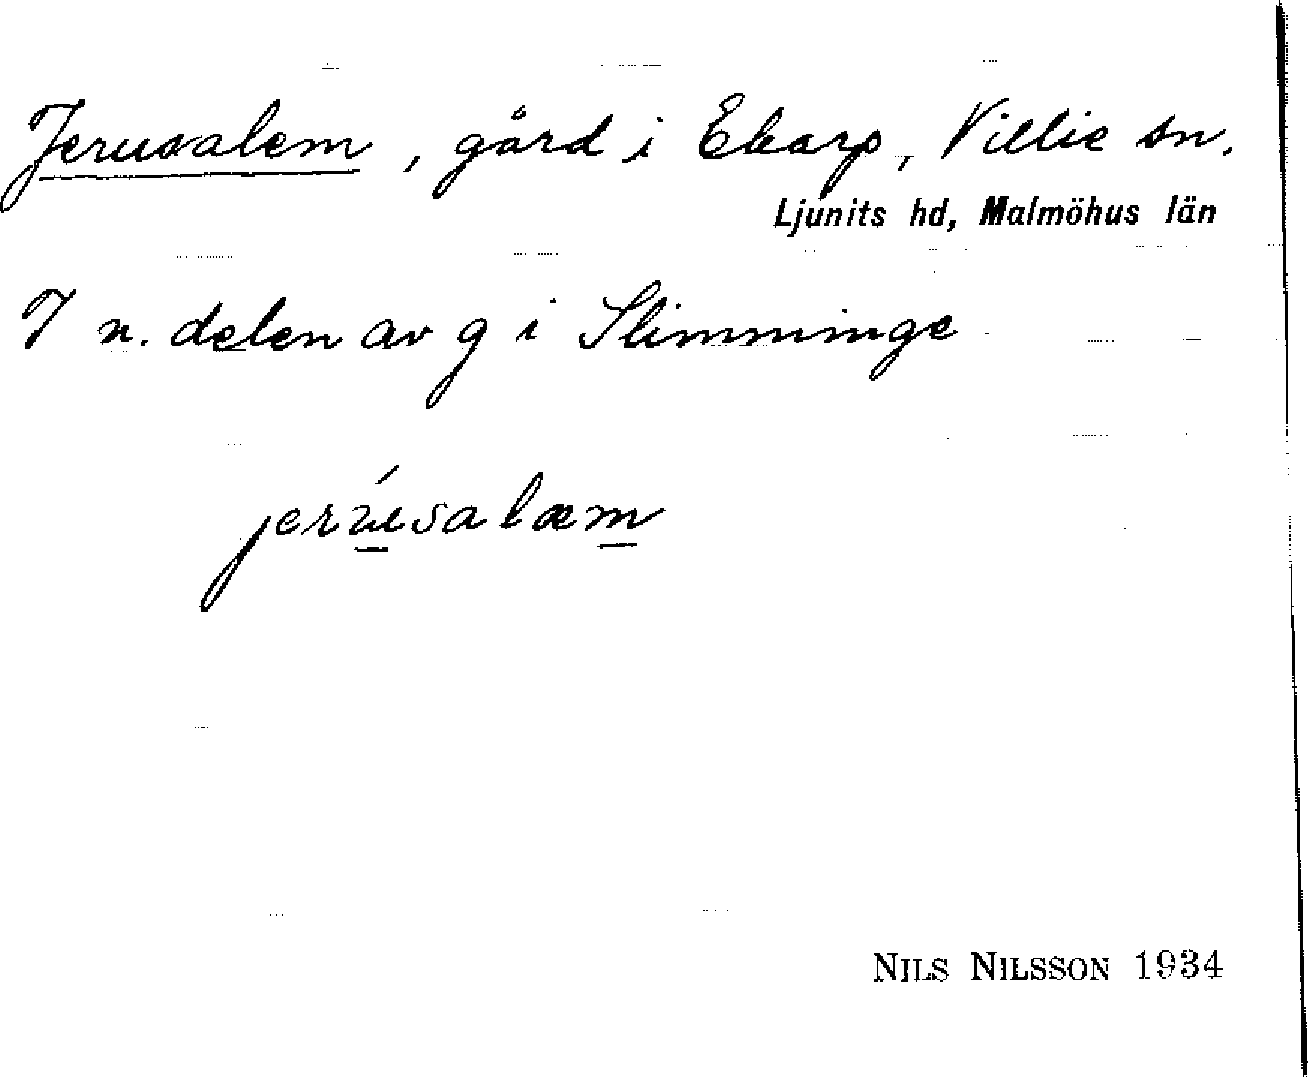 Jerusalem, gård i Ekarp, Villie sn.
Ljunits hd, Malmöhus län
I n. delen av g i Slimminge
jerúsalæm
NILS NILSSON 1934